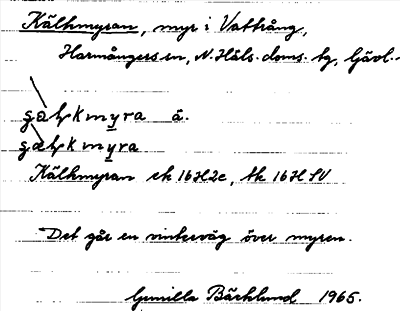 Kälkmyran, myr i Vattrång,
Harmångers sn, N. Häls. doms. tg, Gävl.
gælkmyra ä.
gælkmyra
Kälkmyran ek 16H2e, tk 16H SV
Det går en vinterväg över myren.
Gunilla Bäcklund 1965.